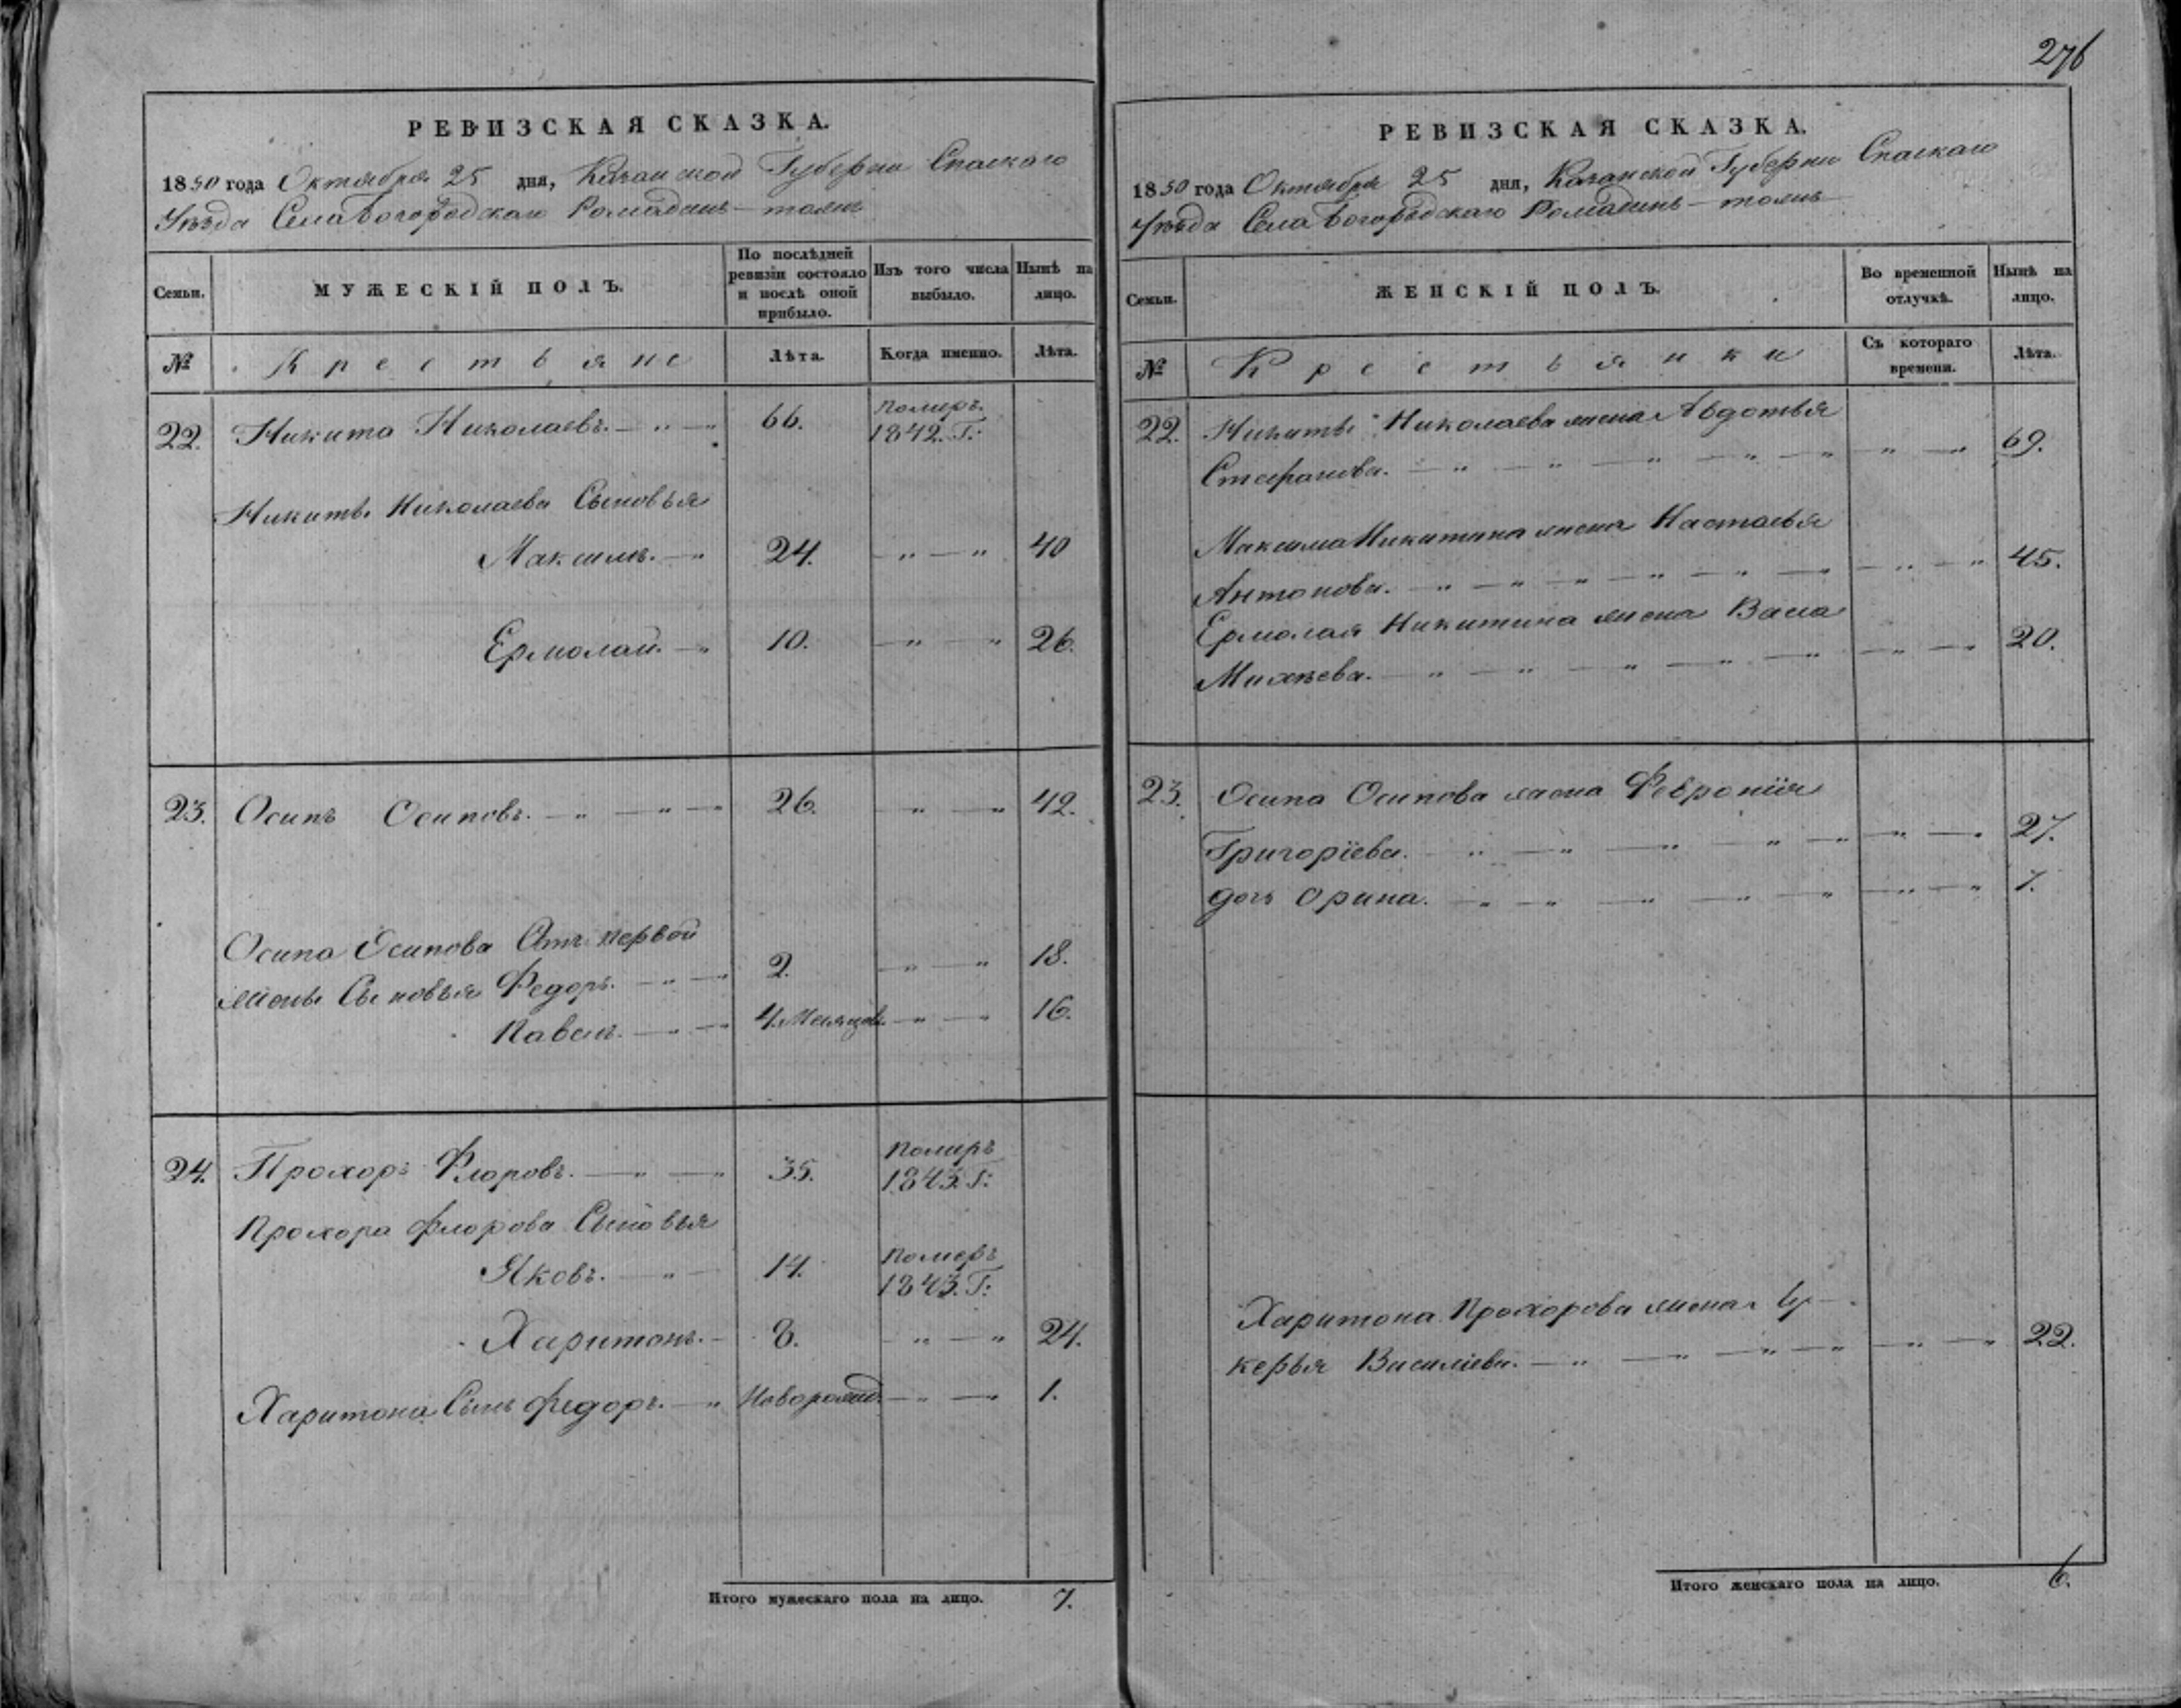 276
РЕВИЗСКАЯ СКАЗКА.
1850 года Октября 25 дня, Казанской Губерни Спаскаго
Уѣзда Села Богородскаго Ромадань тожъ
Семьи.
МУЖЕСКІЙ ПОЛЪ.
По послѣдней ревизіи состояло и послѣ оной прибыло.
Изъ того числа выбыло.
Нынѣ на лицо.
№
Крестьяне
Лѣта.
Когда именно.
Лѣта.
22. Никита Николаевъ. 66. помиръ. 1842. Г:
Никиты Николаева Сыновья
Максимъ. 24. 40
Ермолай. 10. 26.
23. Осипъ Осиповъ. 26. 42.
Осипа Осипова Отъ первой
жены Сыновья Федоръ. 2. 18.
Павелъ. 4. Месяцовъ 16.
24. Прохоръ Флоровъ. 35. помиръ 1843. Г:
Прохора Флорова Сыновья
Яковъ. 14. померъ 1843. Г:
Харитонъ. 8. 24.
Харитона Сынъ Федоръ. Новорожд. 1.
Итого мужескаго пола на лицо. 7.
РЕВИЗСКАЯ СКАЗКА.
1850 года Октября 25 дня, Казанской Губерни Спаскаго
Уѣзда Села Богородскаго Ромадань тожъ
Семьи.
ЖЕНСКІЙ ПОЛЪ.
Во временной отлучкѣ.
Нынѣ на лицо.
№
Крестьянки
Съ котораго времени.
Лѣта.
22. Никиты Николаева жена Авдотья
Стефанова. 69.
Максима Никитина жена Настасья
Антонова. 45.
Ермолая Никитина жена Васа
Михѣева. 20.
23. Осипа Осипова жена Феврония
Григоріева. 27.
дочь Орина. 7.
Харитона Прохорова жена Лу-
керья Василіева. 22.
Итого женскаго пола на лицо. 6.